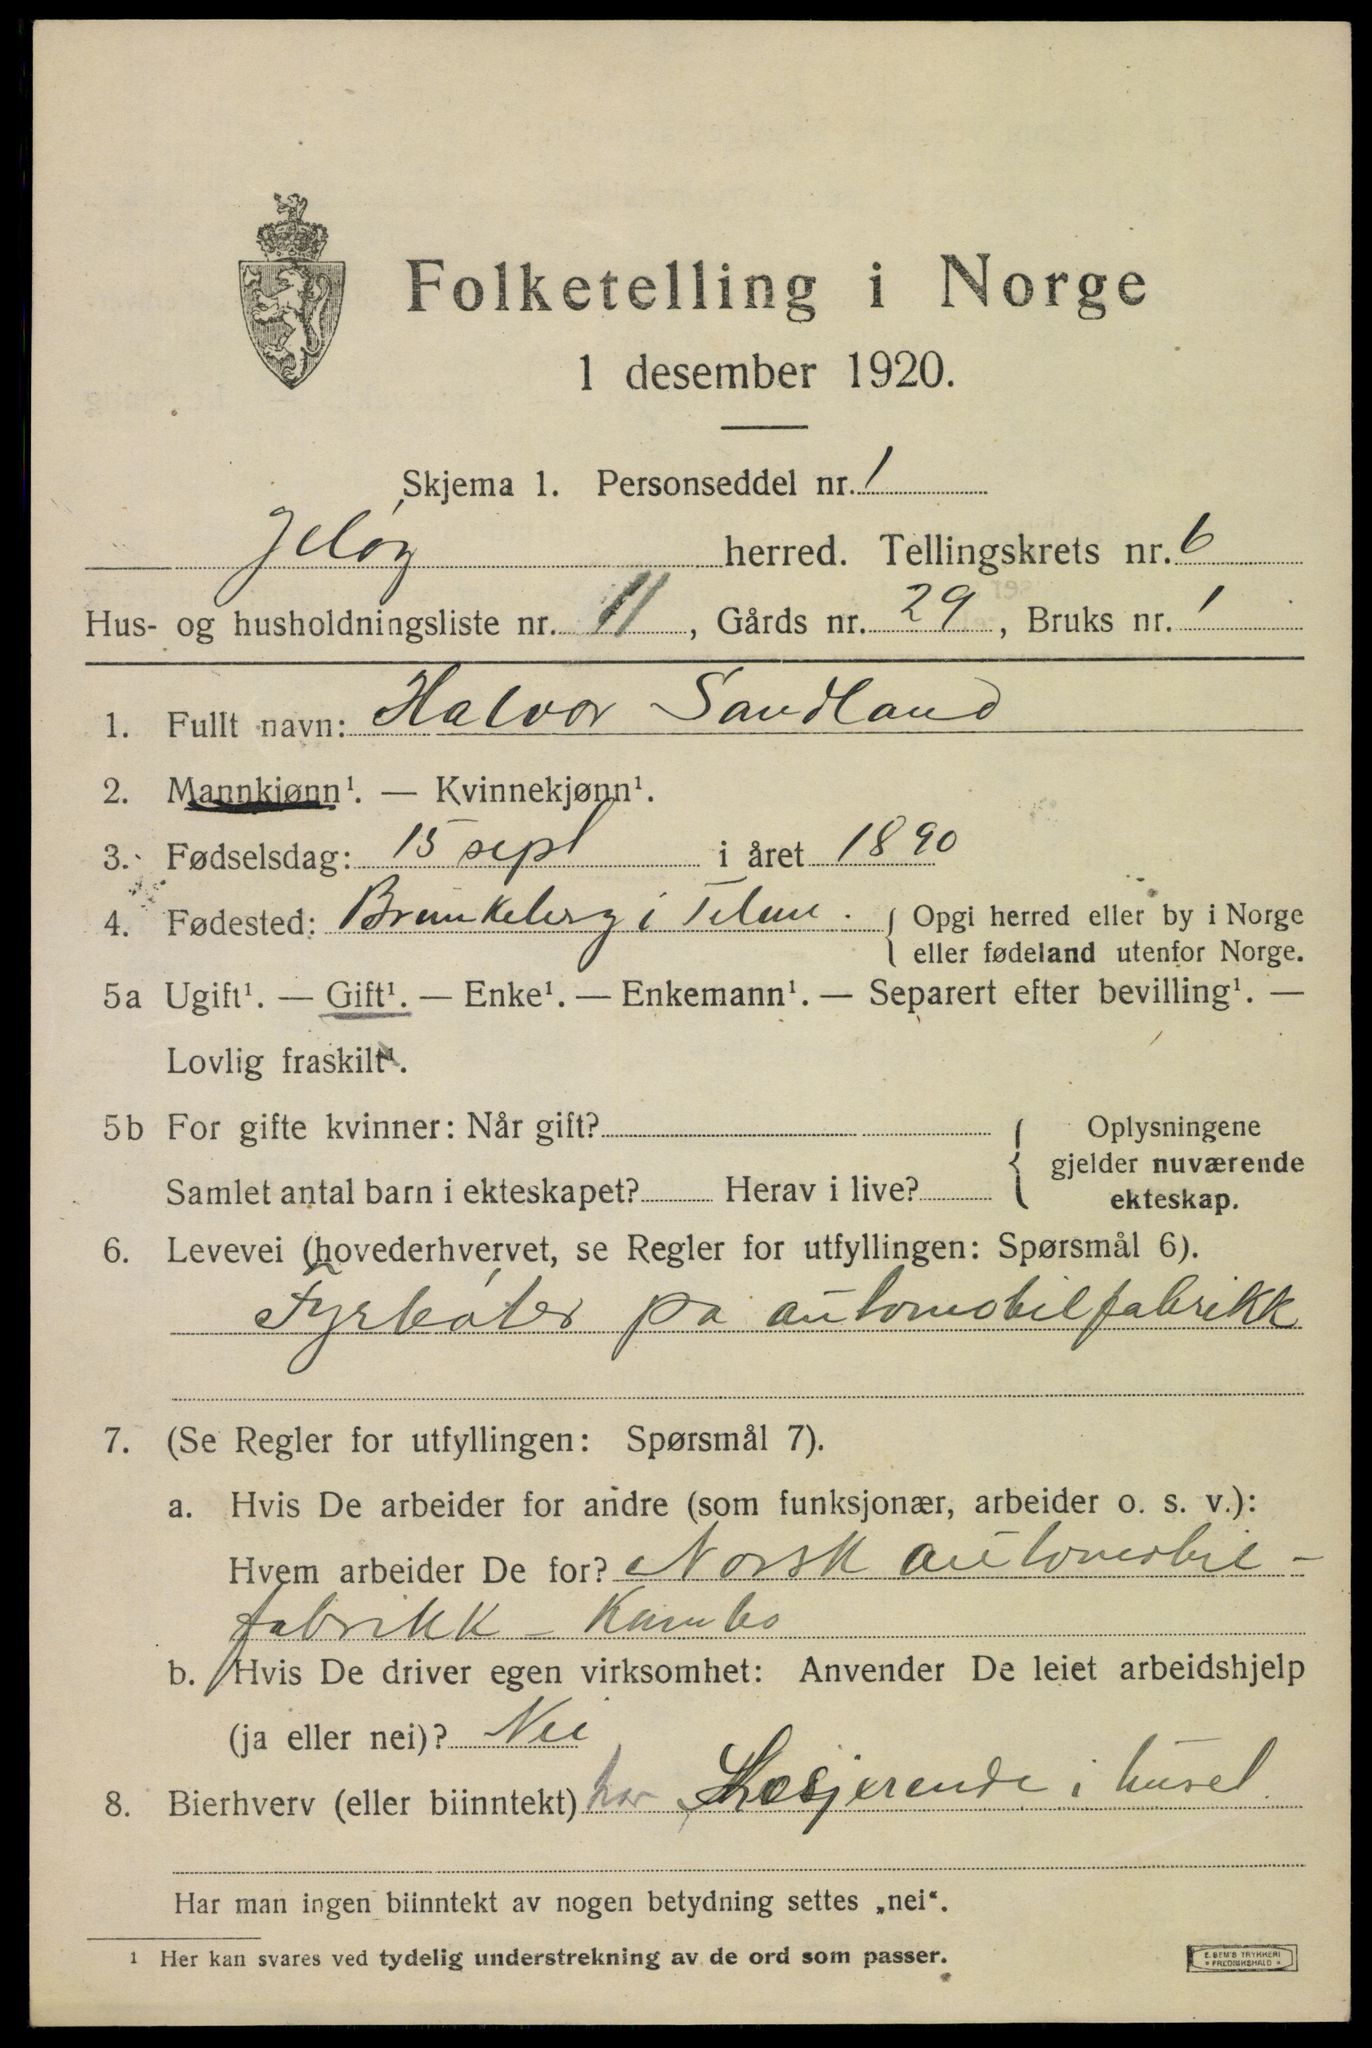 Folketelling i Norge
1 desember 1920.
Skjema 1. Personseddel nr. 1
Jeløy herred. Tellingskrets nr. 6
Hus- og husholdningsliste nr. 11, Gårds nr. 29, Bruks nr. 1
1. Fullt navn: Halvor Sandland
2. Mannkjønn¹. — Kvinnekjønn¹.
3. Fødselsdag: 15 sept i året 1890
4. Fødested: Brunkeberg i Telem. { Opgi herred eller by i Norge
eller fødeland utenfor Norge.
5a Ugift¹. — Gift¹. — Enke¹. — Enkemann¹. — Separert efter bevilling¹. —
Lovlig fraskilt¹.
5b For gifte kvinner: Når gift? { Oplysningene
gjelder nuværende
Samlet antal barn i ekteskapet? Herav i live? ekteskap.
6. Levevei (hovederhvervet, se Regler for utfyllingen: Spørsmål 6).
Fyrbøter på automobilfabrikk
7. (Se Regler for utfyllingen: Spørsmål 7).
a. Hvis De arbeider for andre (som funksjonær, arbeider o. s. v.):
Hvem arbeider De for? Norsk automobil-
fabrikk - Kambo
b. Hvis De driver egen virksomhet: Anvender De leiet arbeidshjelp
(ja eller nei)? Nei
8. Bierhverv (eller biinntekt) har Losjerende i huset
Har man ingen biinntekt av nogen betydning settes „nei“.
¹ Her kan svares ved tydelig understrekning av de ord som passer.
E. SEM'S TRYKKERI
* FREDRIKSHALD *